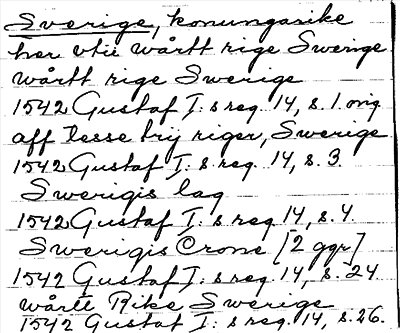 Sverige, konungarike
her vtii wårtt rige Swerige
wårtt rige Swerige
1542 Gustaf I: s reg. 14, s. 1. orig
aff tesse trij riger, Swerige
1542 Gustaf I: s reg. 14, s. 3.
Swerigis lag
1542 Gustaf I: s reg. 14, s. 4.
Swerigis Crone [2 ggr]
1542 Gustaf I: s reg. 14, s. 24
wårtt Rike Swerige
1542 Gustaf I: s reg. 14, s. 26.